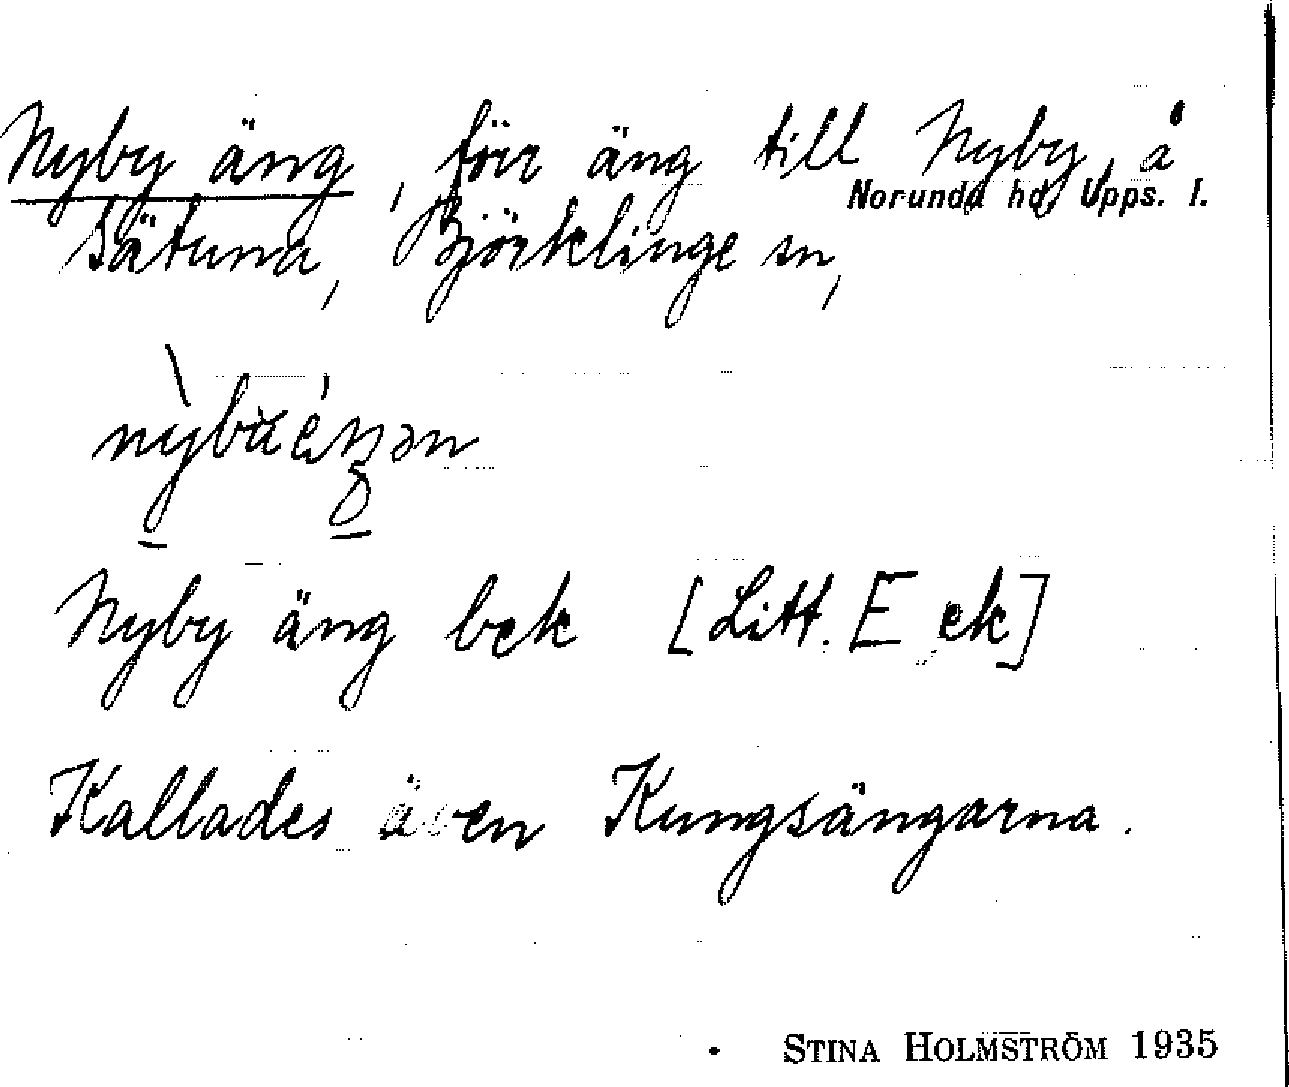 Nyby äng, förr äng till Nyby, å
Norunda hd, Upps. l.
Sätuna, Björklinge sn,
Nyby äng bek [Litt. E ek]
Kallades även Kungsängarna.
STINA HOLMSTRÖM 1935